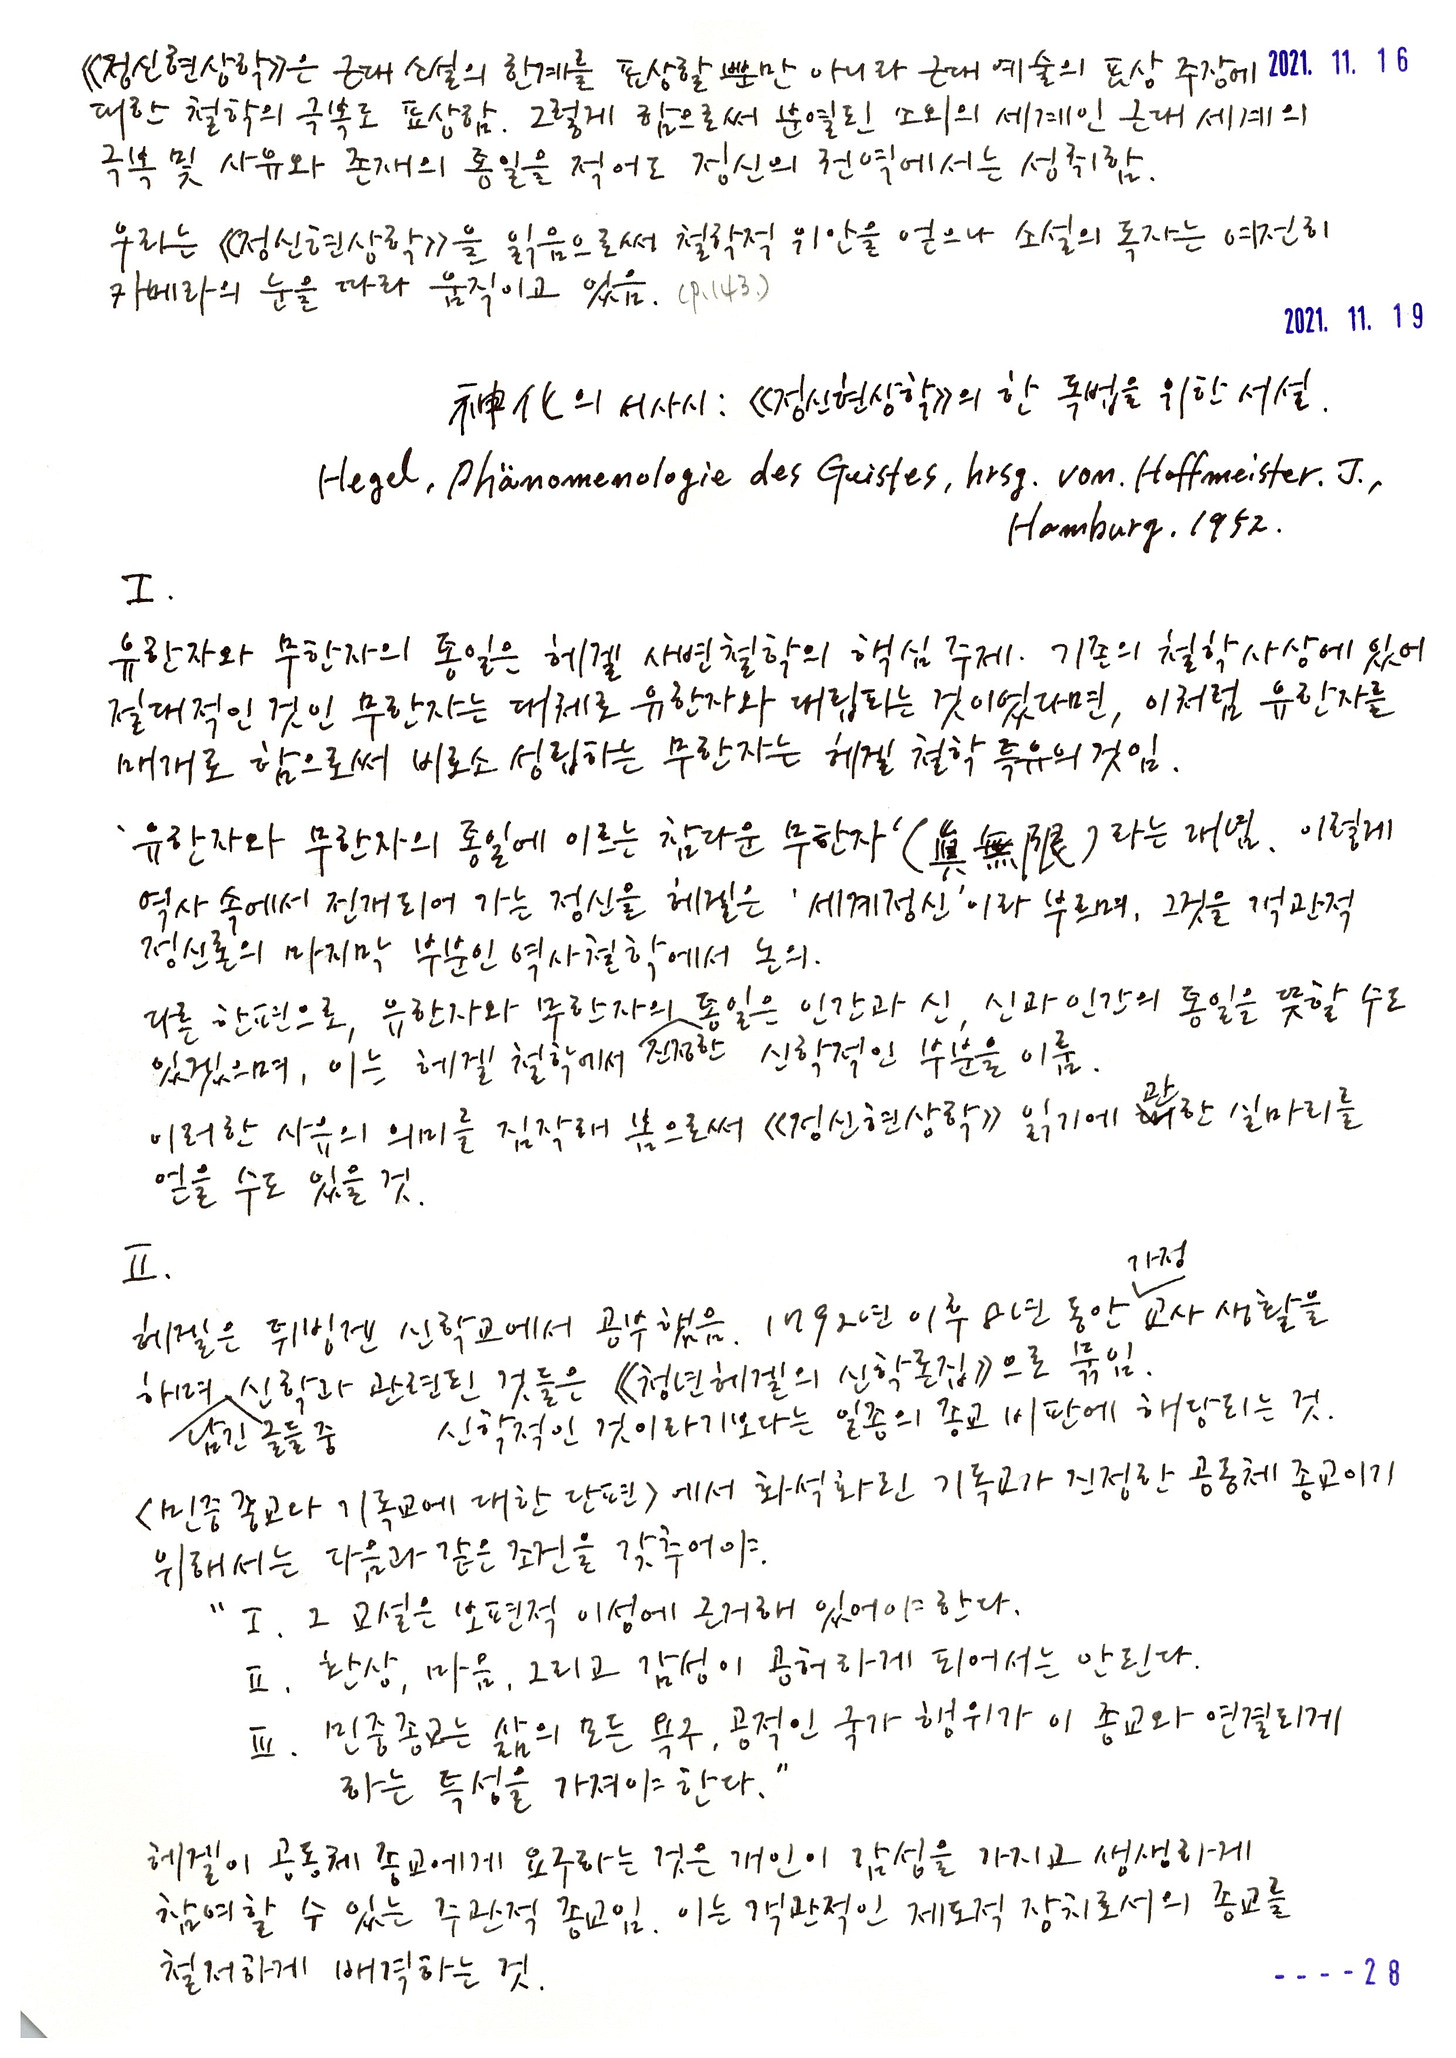 《정신현상학》은 근대 소설의 한계를 표상할 뿐만 아니라 근대 예술의 표상 주장에 2021. 11. 16
대한 철학의 극복도 표상함. 그렇게 함으로써 분열된 소외의 세계인 근대 세계의
극복 및 사유와 존재의 통일을 적어도 정신의 권역에서는 성취함.
우리는 《정신현상학》을 읽음으로써 철학적 위안을 얻으나 소설의 독자는 여전히
카메라의 눈을 따라 움직이고 있음. (p.143.)
2021. 11. 19
神化의 서사시: 《정신현상학》의 한 독법을 위한 서설.
Hegel, Phänomenologie des Geistes, hrsg. von. Hoffmeister. J.,
Hamburg. 1952.
I.
유한자와 무한자의 통일은 헤겔 사변철학의 핵심 주제. 기존의 철학사상에 있어
절대적인 것인 무한자는 대체로 유한자와 대립되는 것이었다면, 이처럼 유한자를
매개로 함으로써 비로소 성립하는 무한자는 헤겔 철학 특유의 것임.
'유한자와 무한자의 통일에 이르는 참다운 무한자'(眞無限)라는 개념. 이렇게
역사 속에서 전개되어 가는 정신을 헤겔은 '세계정신'이라 부르며, 그것을 객관적
정신론의 마지막 부분인 역사철학에서 논의.
다른 한편으로, 유한자와 무한자의 통일은 인간과 신, 신과 인간의 통일을 뜻할 수도
진정한
있겠으며, 이는 헤겔 철학에서 신학적인 부분을 이룸.
관
이러한 사유의 의미를 짐작해 봄으로써 《정신현상학》 읽기에 한 실마리를
얻을 수도 있을 것.
II.
가정
헤겔은 튀빙겐 신학교에서 공부했음. 1792년 이후 8년 동안 교사 생활을
하며 신학과 관련된 것들은 《청년헤겔의 신학론집》으로 묶임.
남긴 글들 중 신학적인 것이라기보다는 일종의 종교 비판에 해당되는 것.
<민중종교나 기독교에 대한 단편>에서 화석화된 기독교가 진정한 공동체 종교이기
위해서는 다음과 같은 조건을 갖추어야.
"I. 그 교설은 보편적 이성에 근거해 있어야 한다.
II. 환상, 마음, 그리고 감성이 공허하게 되어서는 안된다.
III. 민중종교는 삶의 모든 욕구, 공적인 국가 행위가 이 종교와 연결되게
하는 특성을 가져야 한다."
헤겔이 공동체 종교에게 요구하는 것은 개인이 감성을 가지고 생생하게
참여할 수 있는 주관적 종교임. 이는 객관적인 제도적 장치로서의 종교를
철저하게 배격하는 것.
----28